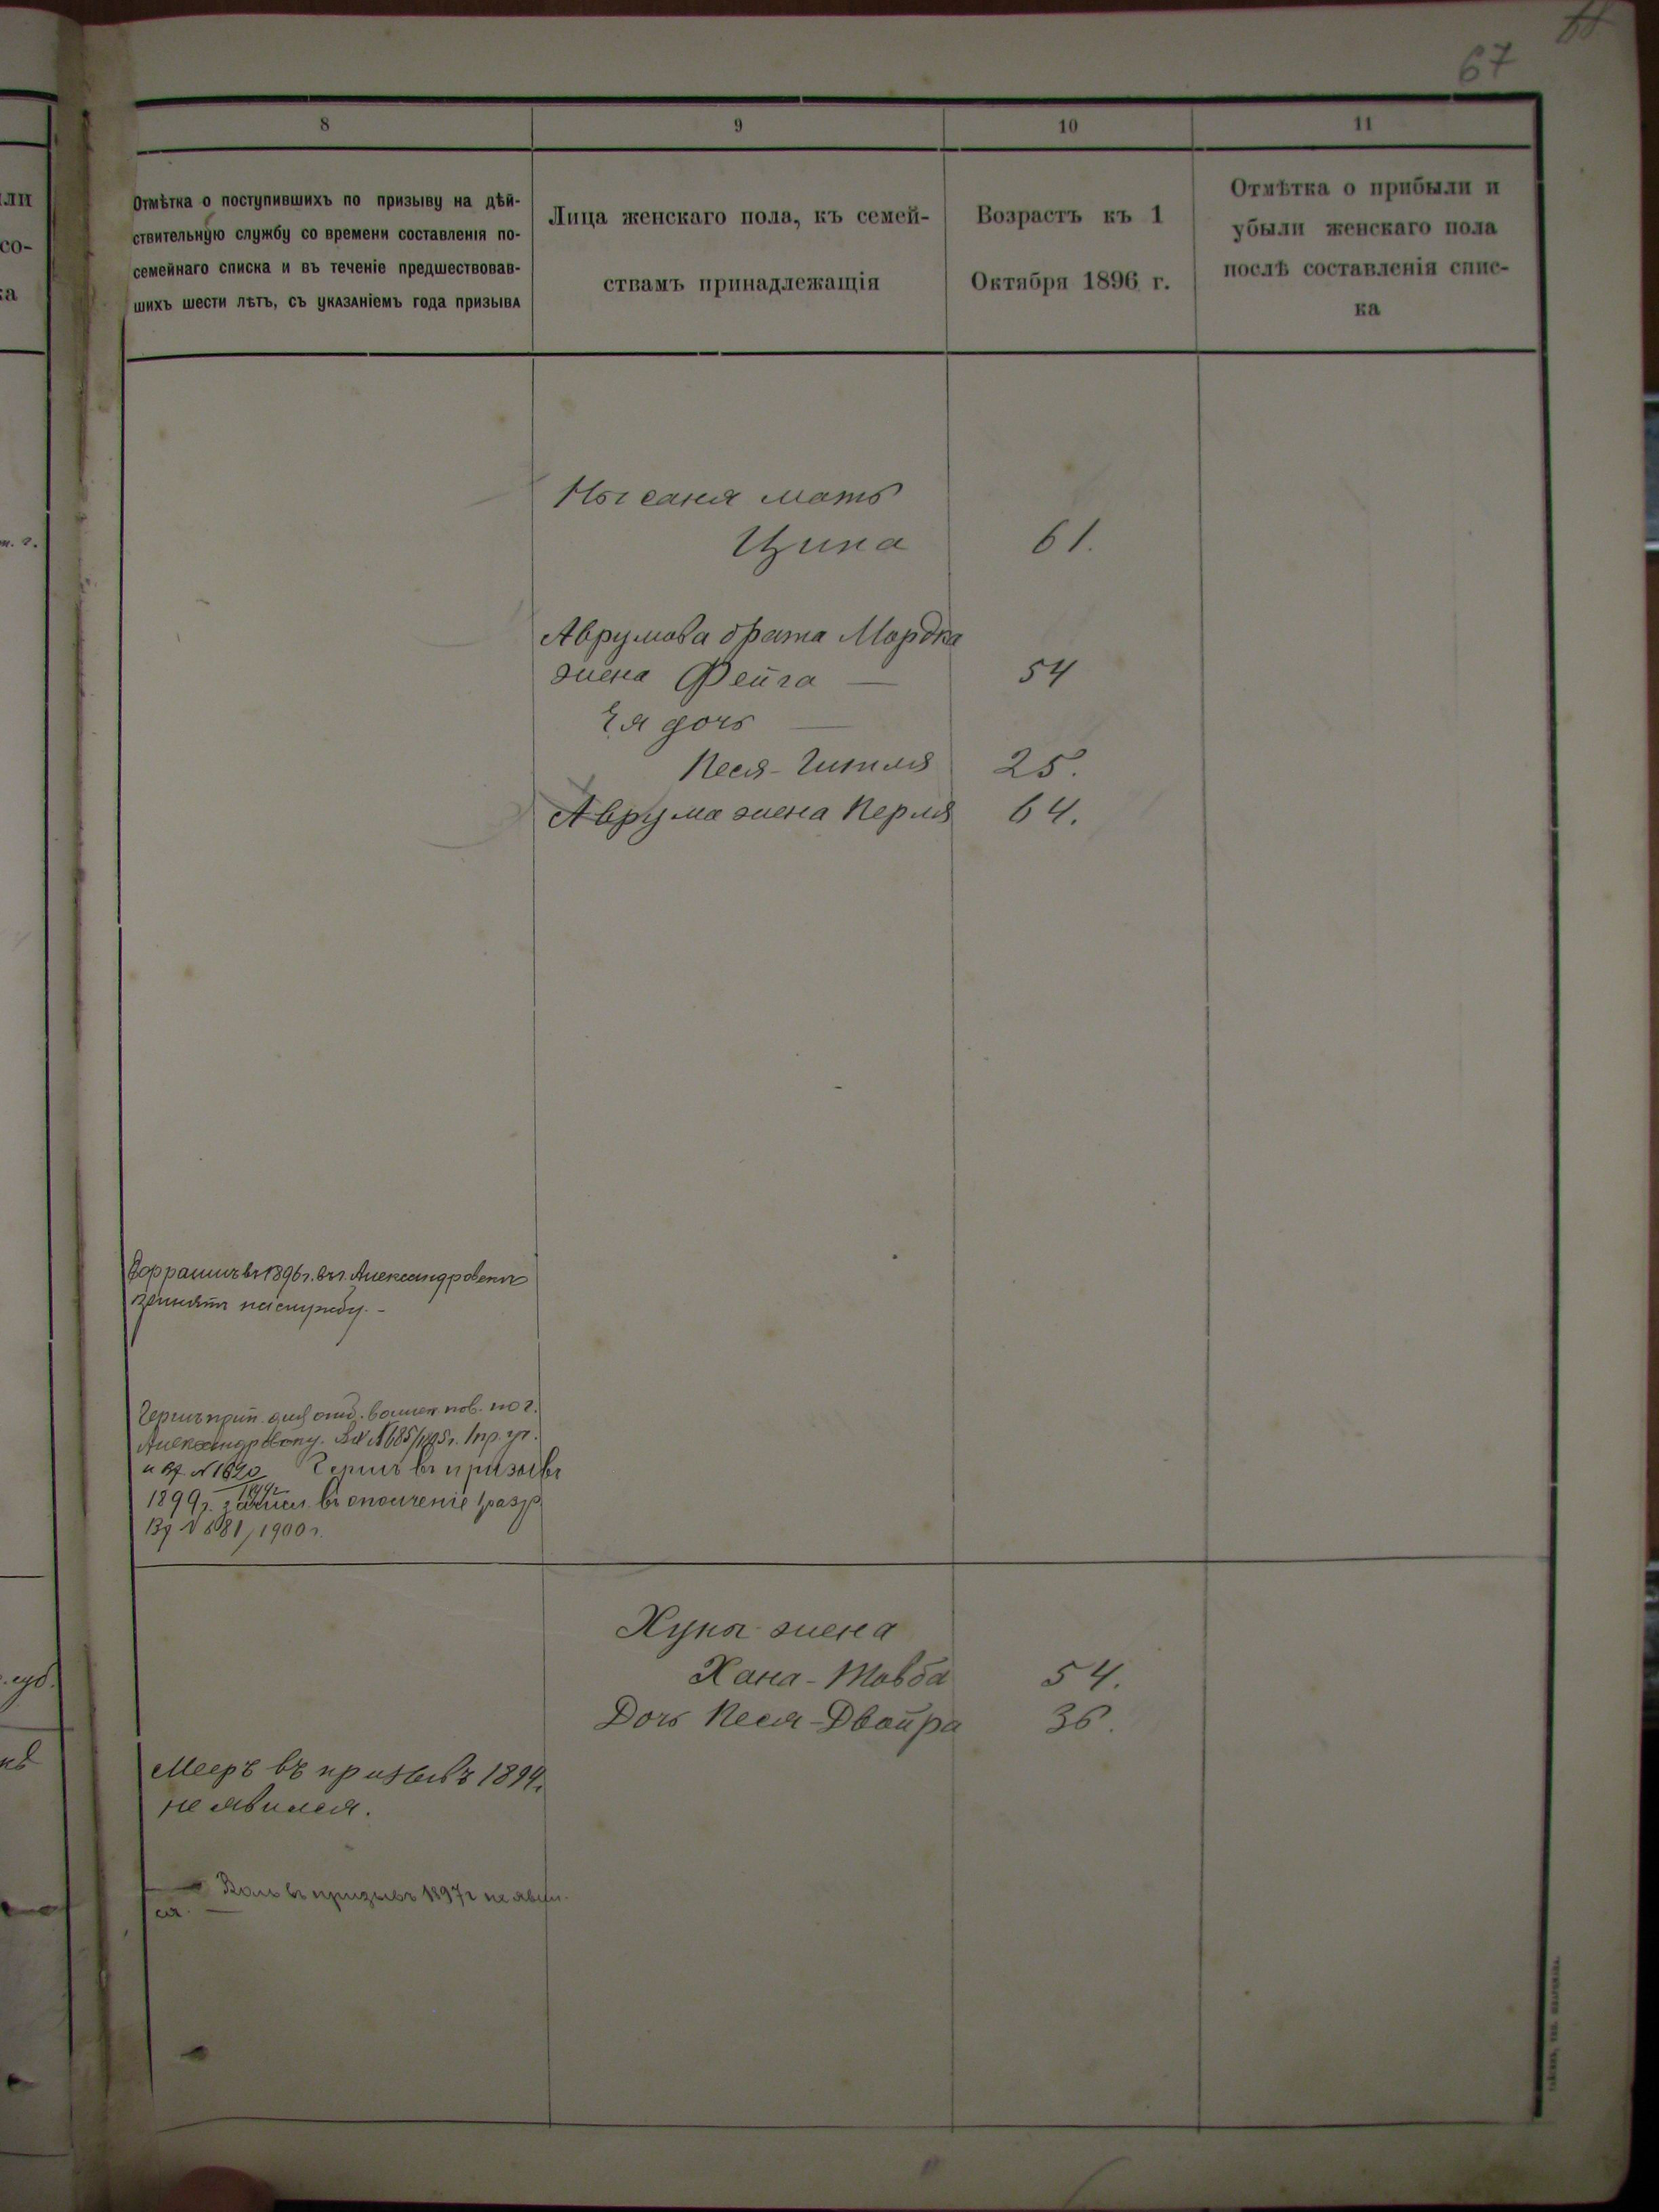 67
8
9
10
11
Отмѣтка о поступившихъ по призыву на дѣй-
ствительную службу со времени составленія по-
семейнаго списка и въ теченіе предшествовав-
шихъ шести лѣтъ, съ указаніемъ года призыва
Лица женскаго пола, къ семей-
ствамъ принадлежащія
Возрастъ къ 1
Октября 1896 г.
Отмѣтка о прибыли и
убыли женскаго пола
послѣ составленія спис-
ка
мать
Ципа 61.
Аврумова брата Мордка
жена Фейга — 54
Ея дочь —
Песя-Гитля 25.
Аврума жена Перля 64.
въ 1896 г. въ г. Александровскѣ
принятъ на службу. –
Гершъ прип. для отб. воинск. пов. по г.
Александровску. Вх № 685/1895 г. 1 пр. уч.
и Вх. № 1690 Гершъ въ призывъ
1899 г. зачисл. въ ополченіе 1 разр
Вх № 581/1900 г.
Хуны жена
Хана-Товба 54.
Дочь Песя-Двойра 36.
Мееръ въ призывъ 1894 г.
не явился.
въ призывъ 1897 г не явил-
ся. —